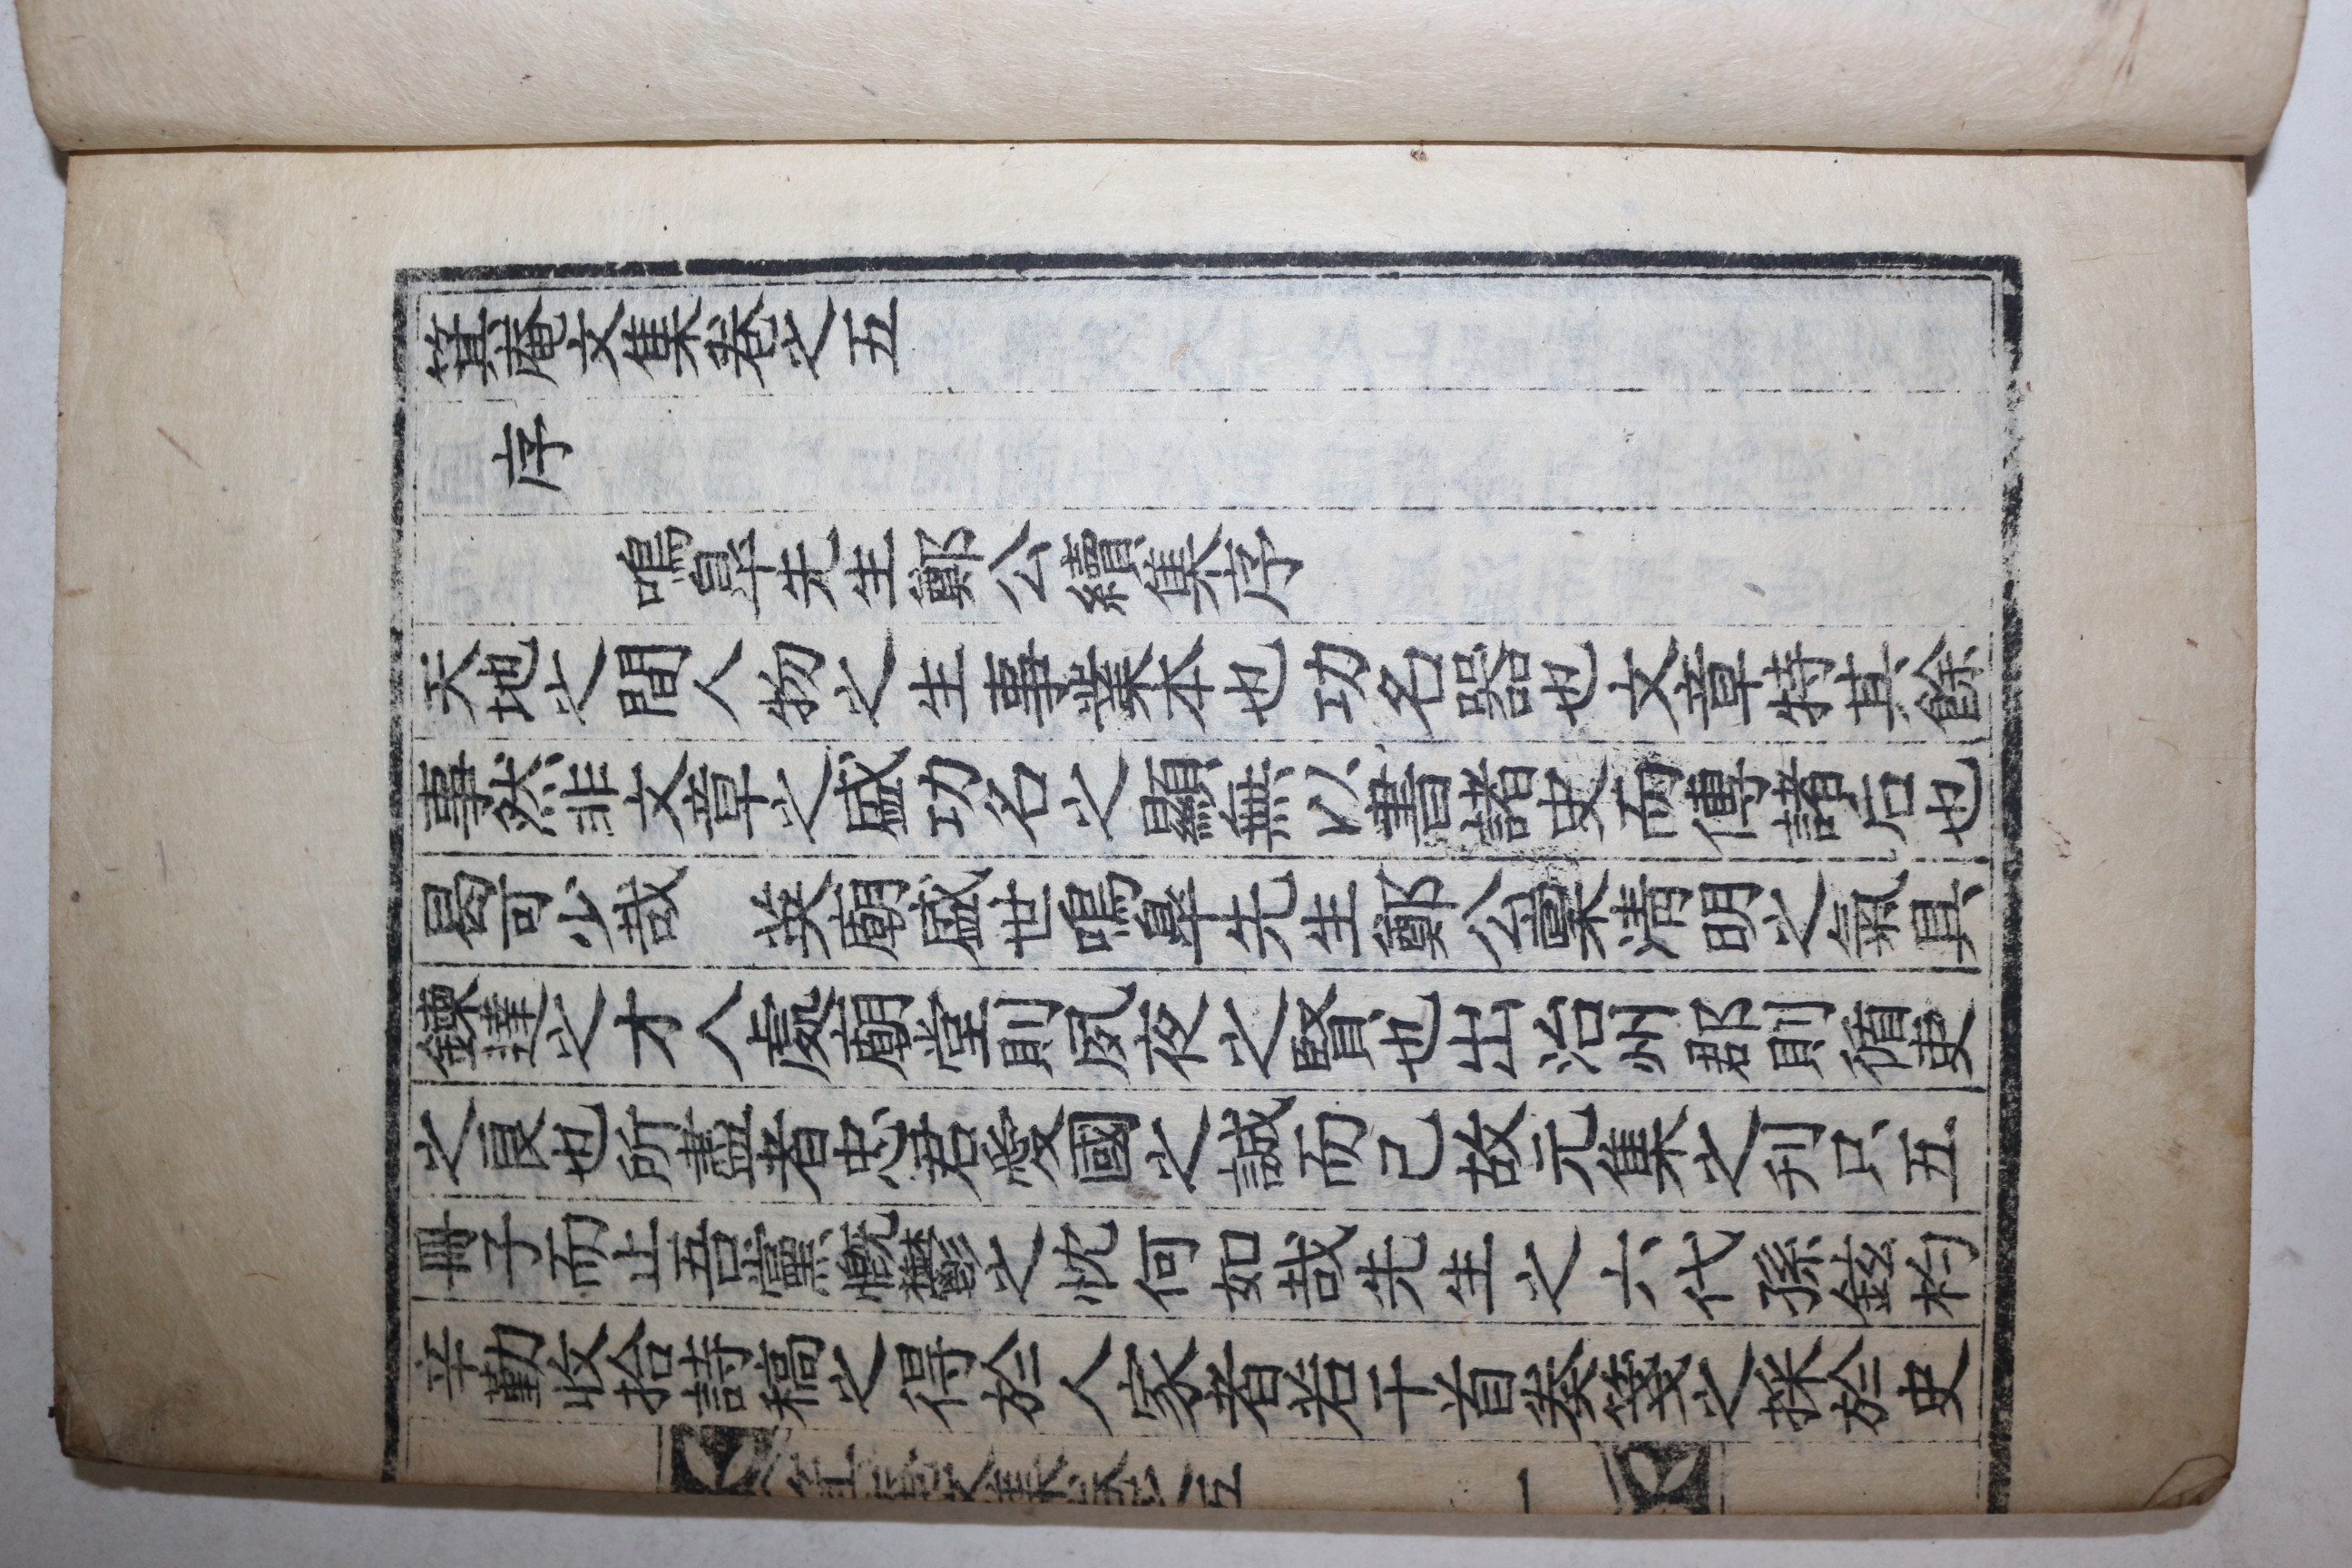 箕庵文集卷之五
序
鳴皐先生鄭公續集序
天地之間人物之生事業本也功名器也文章特其餘
事然非文章之盛功名之顯無以書諸史而傳諸后也
曷可少哉 英廟盛世鳴皐先生鄭公稟淸明之氣具
鍊達之才入處廟堂則夙夜之賢也出治州郡則循吏
之良也所盡者忠君愛國之誠而已故元集之刊只五
冊子而止吾黨慨鬱之忱何如哉先生之六代孫鉉杓
辛勤收拾詩稿之得於人家者若干首奏箋之採於史
箕庵文集卷之五 一